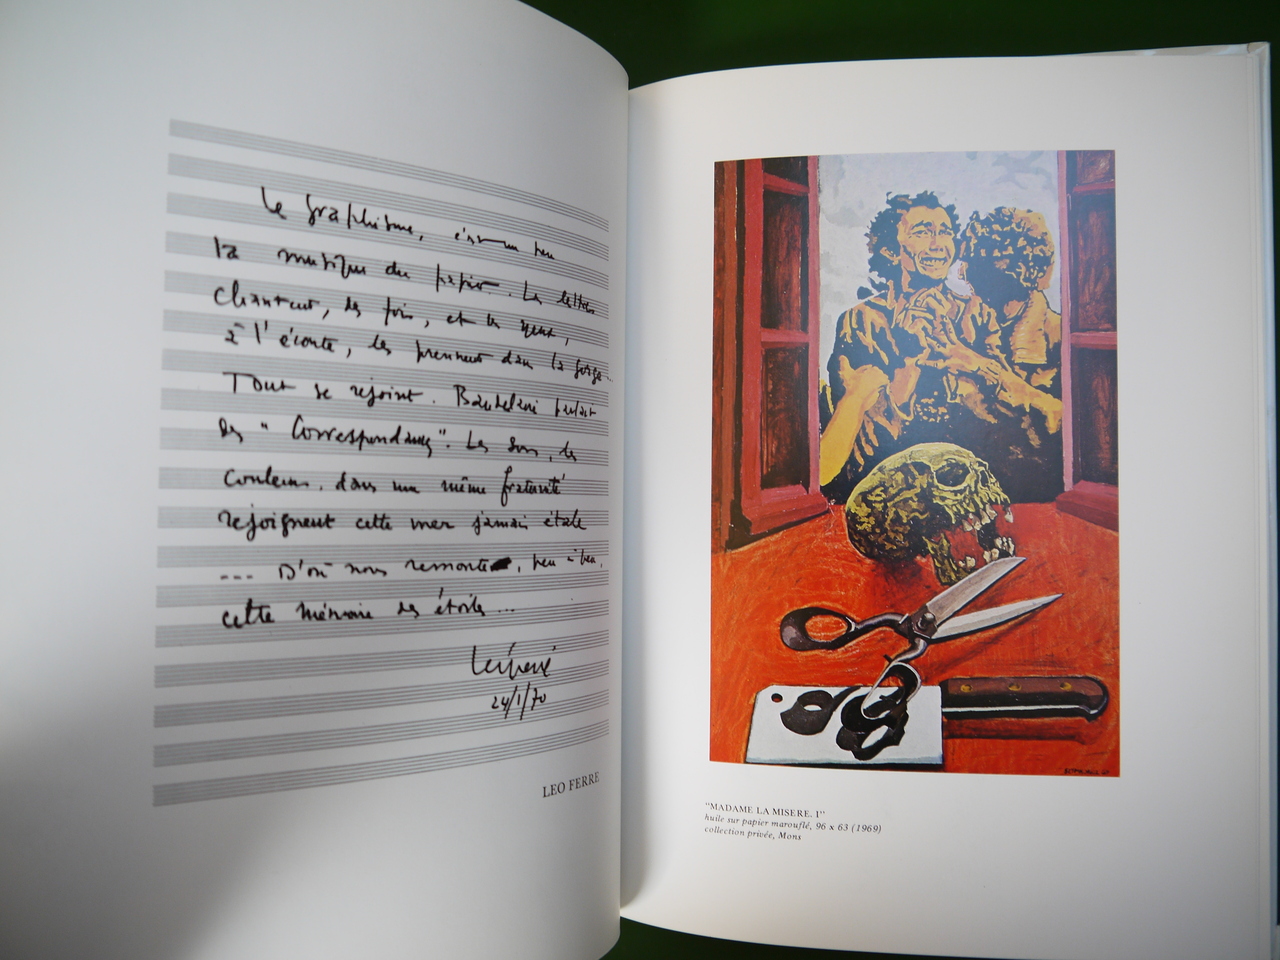 Le graphisme, c'est un peu
la musique du papier. Les lettres
chantent, des fois, et les yeux,
à l'écoute, les prennent dans la gorge...
Tout se rejoint. Baudelaire parlait
des "Correspondances". Les sons, les
couleurs, dans une même fraternité
rejoignent cette mer jamais étale
... D'où nous remonte, peu à peu,
cette mémoire des étoiles...
Léo Ferré
24/1/70
LEO FERRE
"MADAME LA MISERE. I"
huile sur papier marouflé, 96 x 63 (1969)
collection privée, Mons